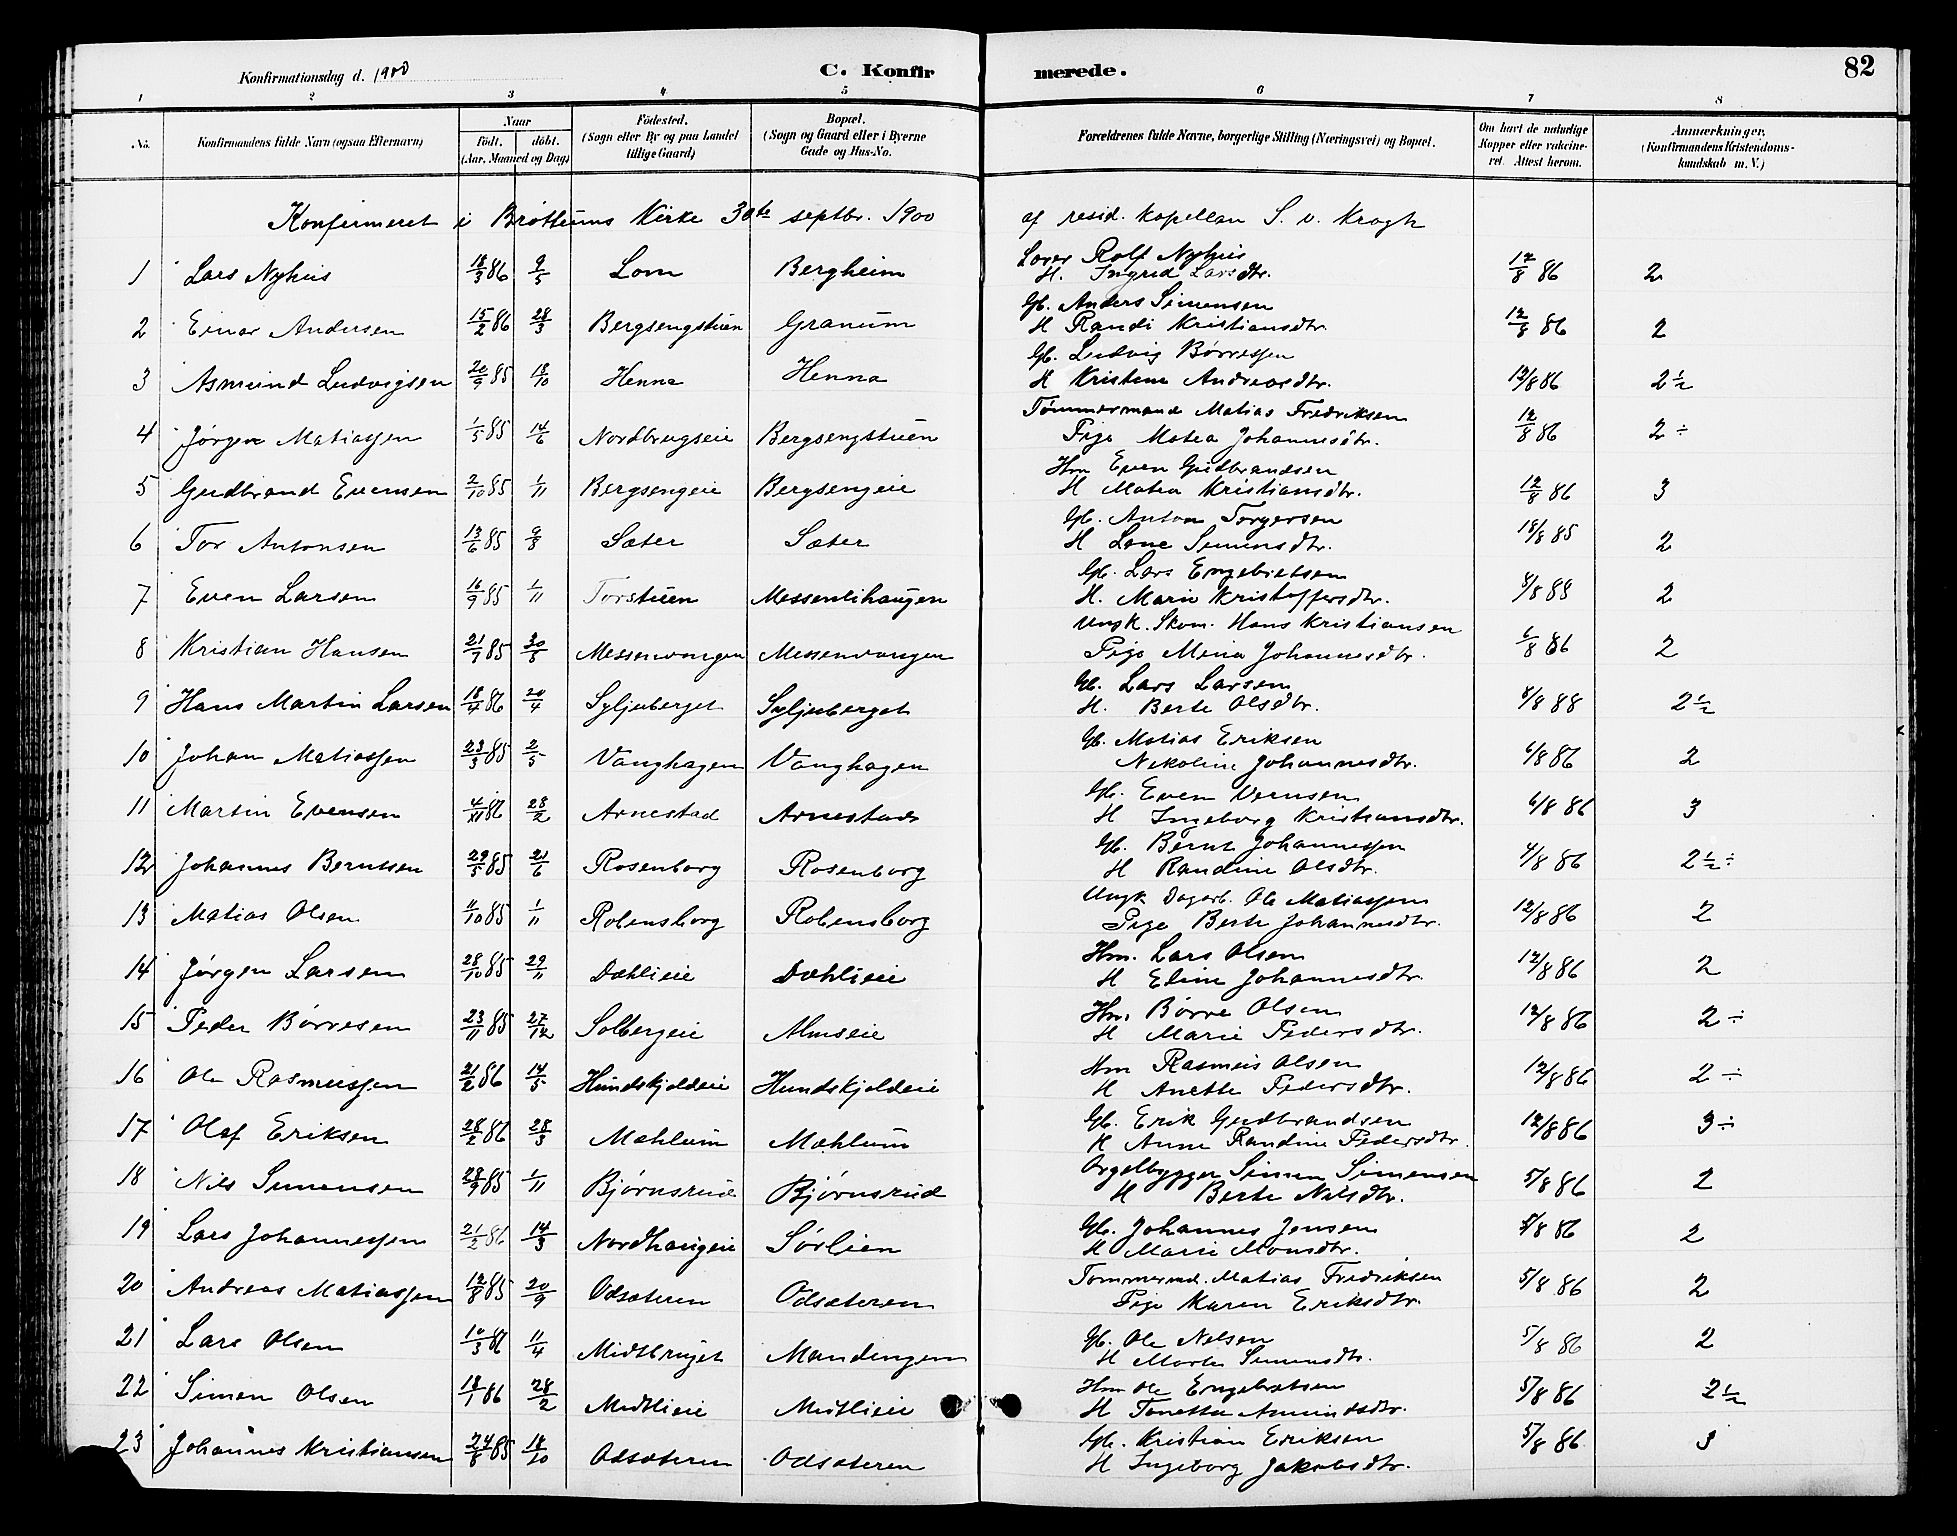 Konfirmationsdag d. 1900 C. Konfirmerede. 82
1 2 3 4 5 6 7 8
No. Konfirmandens fulde Navn (ogsaa Efternavn) Naar født. døbt. (Aar, Maaned og Dag) Fødested. (Sogn eller By og paa Landet tillige Gaard) Bopæl. (Sogn og Gaard eller i Byerne Gade og Hus-No. Forældrenes fulde Navne, borgerlige Stilling (Næringsvei) og Bopæl. Om havt de naturlige Kopper eller vakcineret. Attest herom. Anmærkninger. (Konfirmandens Kristendomskundskab m. V.)
Konfirmeret i Brøttums Kirke 30te septbr. 1900 af resid. kapellan S. v. Krogh
1 Lars Nyhus 18/3 86 9/5 Lom Bergheim Rolf Nyhus H. Ingrid Larsdtr. 12/8 86 2
2 Einar Andersen 15/2 86 28/3 Bergsengstuen Granum Gb. Anders Simensen H Randi Kristiansdtr. 12/8 86 2
3 Asmund Ludvigsen 20/9 85 18/10 Henna Henna Gb. Ludvig Børresen H Kristine Andreasdtr. 12/8 86 2½
4 Jørgen Matiassen 1/5 85 14/6 Nordbrugseie Bergsengstuen Tømmermand Matias Fredriksen Pige Matea Johannesdtr. 12/8 86 2÷
5 Gudbrand Evensen 2/10 85 1/11 Bergsengeie Bergsengeie Hm Even Gudbrandsen H Matea Kristiansdtr. 12/8 86 3
6 Tor Antonsen 13/6 85 9/8 Sæter Sæter Gb. Anton Torgersen H Lene Simensdtr. 18/8 85 2
7 Even Larsen 16/9 85 1/11 Torstuen Messenlihaugen Gb. Lars Engebretsen H. Marie Kristoffersdtr. 2
8 Kristian Hansen 21/7 85 Messenvangen Messenvangen Ungk. Skom. Hans Kristiansen Pige Mina Johannesdtr. 6/8 86 2
9 Hans Martin Larsen 18/4 86 Syljuberget Syljuberget Gb. Lars Larsen H. Berte Olsdtr. 2½
10 Johan Matiassen 23/3 85 2/5 Vanghagen Vanghagen Gb. Matias Eriksen Nikoline Johannesdtr. 6/8 86 2
11 Martin Evensen 28/2 Arnestad Arnestad Gb. Even H Ingeborg Kristiansdtr. 6/8 86 3
12 Johannes Berntsen 29/5 85 21/6 Rosenborg Rosenborg Gb. Bernt Johannessen H Randine Olsdtr. 4/8 86 2½÷
13 Matias Olsen 85 1/11 Robensborg Robensborg Ungk. Dagarb. Ole Matiassen Pige Berte Johannesdtr. 12/8 86 2
14 Jørgen Larsen 28/10 85 29/11 Dæhlieie Dæhlieie Hm. Lars Olsen H Eline Johannesdtr. 12/8 86 2
15 Peder Børresen 23/11 85 27/12 Solbergeie Almseie Hm. Børre Olsen H Marie Pedersdtr. 12/8 86 2÷
16 Ole Rasmussen 21/2 86 Hundskjoldeie Hundskjoldeie Hm Rasmus Olsen H Anette Pedersdtr. 12/8 86 2÷
17 Olaf Eriksen 28/2 86 28/3 Mæhlum Mæhlum Gb. Erik Gudbrandsen H Anne Randine Pedersdtr. 12/8 86 3÷
18 Nils Simensen 28/9 85 1/11 Bjørnsrud Bjørnsrud Orgelbygger Simen Simensen H Berte Nilsdtr. 5/8 86 2
19 Lars Johannessen 21/2 86 14/3 Nordhaugeie Sørlien Gb. Johannes Jensen H Marie Monsdtr. 5/8 86 2
20 Andreas Matiassen 12/8 85 20/9 Odsæteren Odsæteren Tømmermd. Matias Fredriksen Pige Karen Eriksdtr. 5/8 86 2
21 Lars Olsen 10/3 86 11/4 Midtbruget Mandengen Gb. Ole Nilsen H Marte Simensdtr. 5/8 86 2
22 Simen Olsen 18/1 86 28/2 Midtlieie Midtlieie Hm Ole Engebretsen H Tonetta Amundsdtr. 5/8 86 2½
23 Johannes Kristiansen 24/8 85 18/10 Odsæteren Odsæteren Gb. Kristian Eriksen H Ingeborg Jakobsdtr. 5/8 86 3